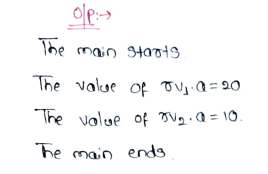 O/P:→
The main starts
The value of rv1.a = 20
The value of rv2.a = 10.
The main ends.